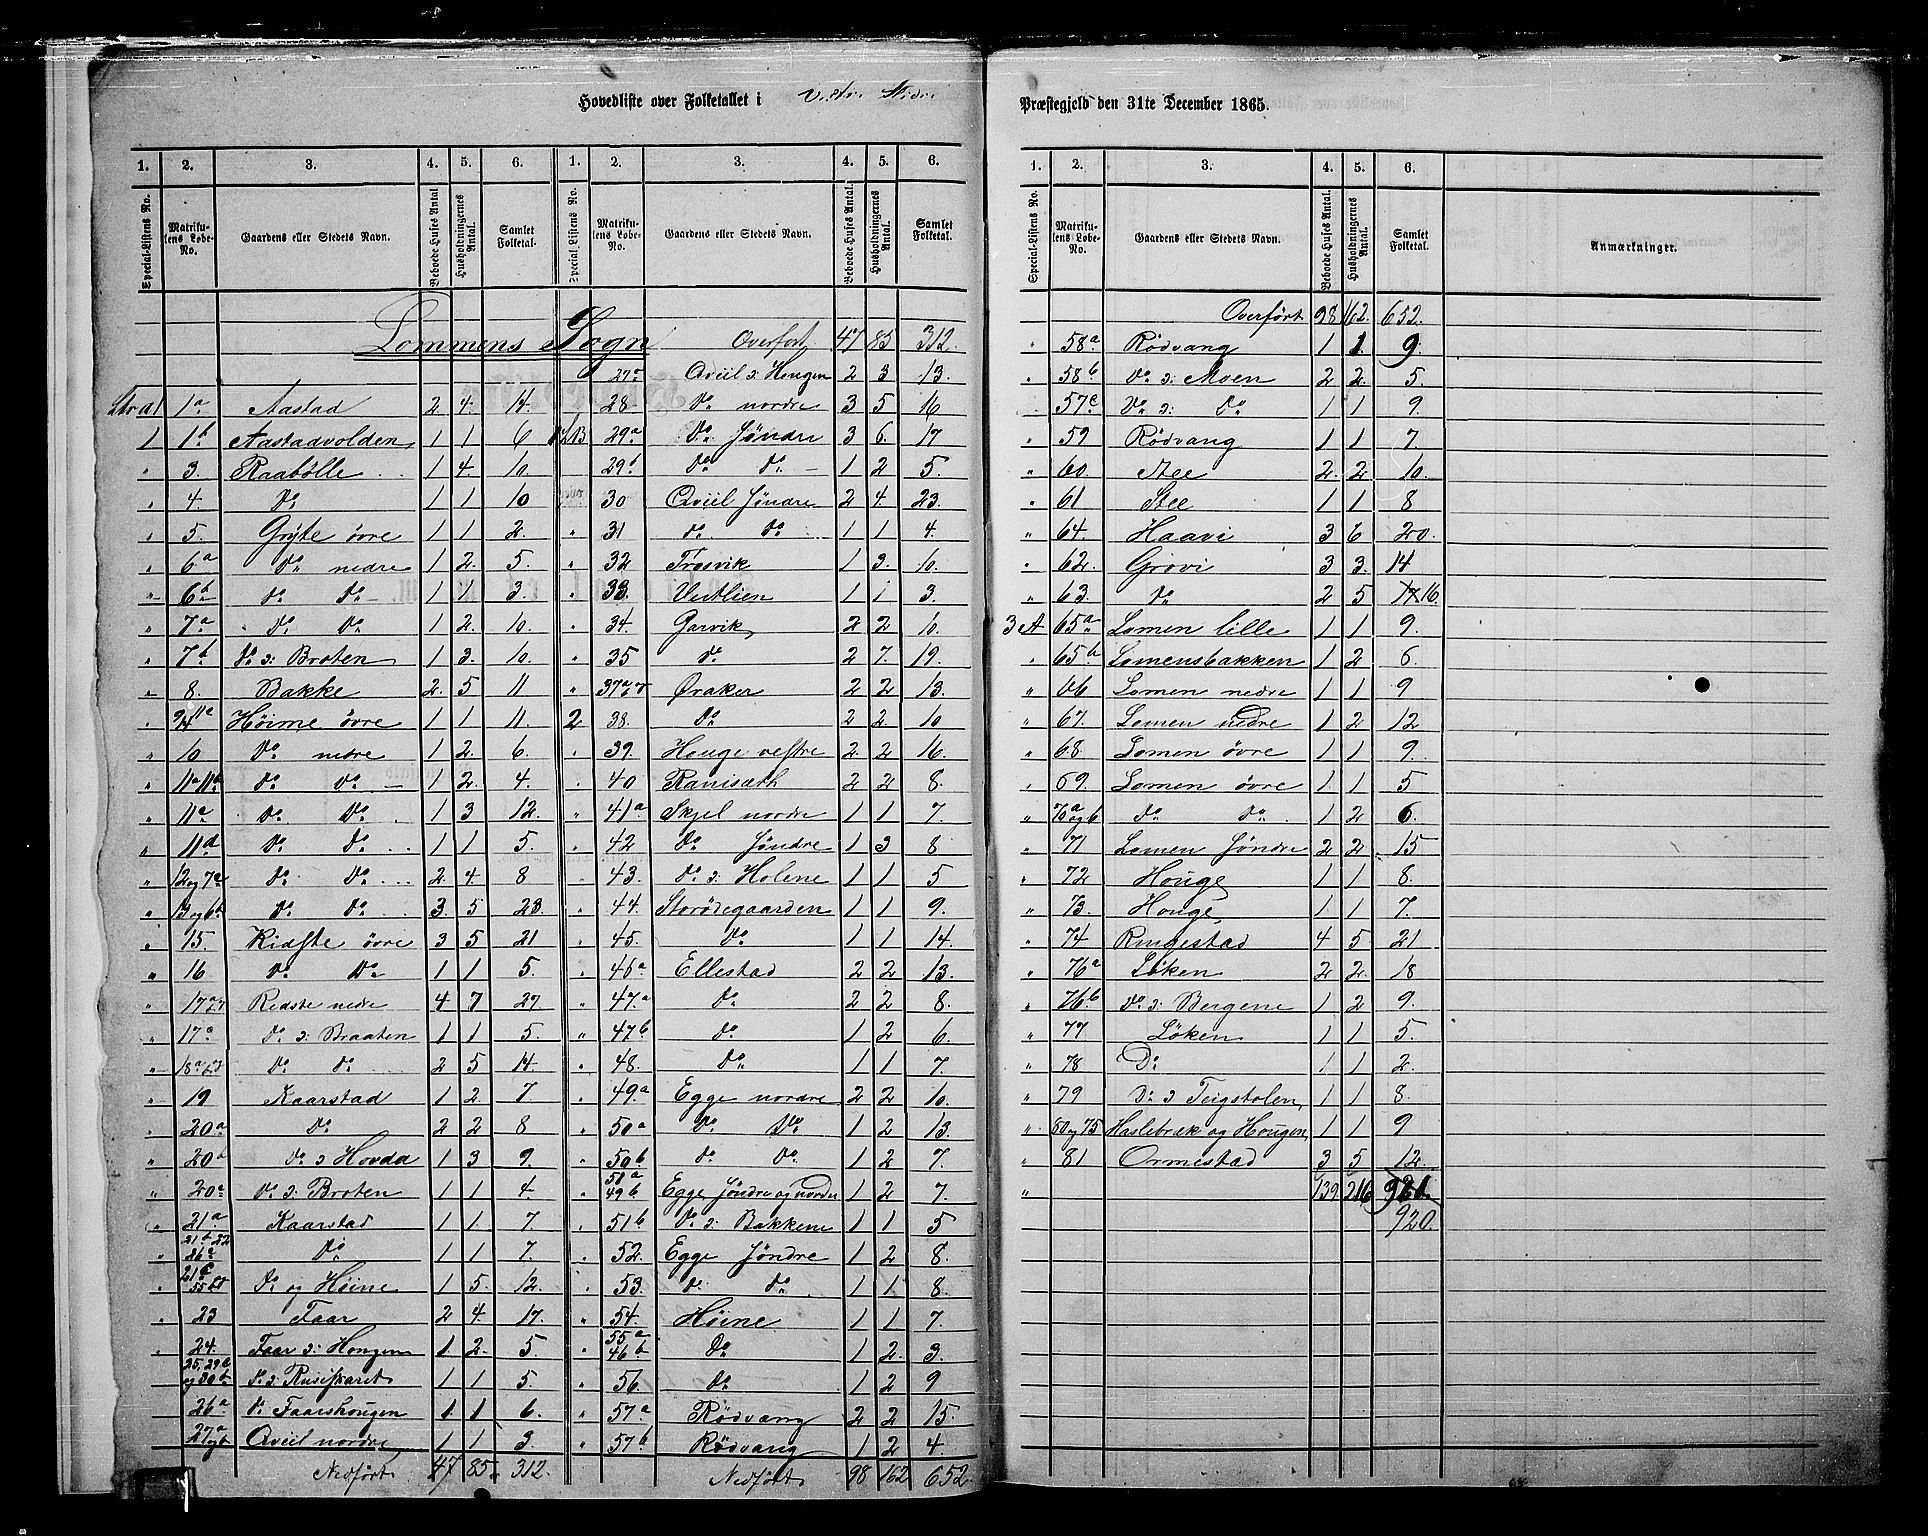 Hovedliste over Folketallet i Vestre Slidre Præstegjeld den 31te December 1865.
1. 2. 3. 4. 5. 6. 1. 2. 3. 4. 5. 6.
Special-Listens No. Matrikulens Løbe-No. Gaardens eller Stedets Navn. Beboede Huses Antal Husholdningernes Antal. Samlet Folketal. Special-Listens No. Matrikulens Løbe-No. Gaardens eller Stedets Navn. Beboede Huses Antal. Husholdningernes Antal. Samlet Folketal.
Lommens Sogn
1a Aastad 2 4. 14.
1 1b Aastadvolden 1 1 6
" 3. Raabølle 1 4. 10.
" 4. Do 1 1 10
" 5. Gryte øvre 1 1 2.
" 6a Do nedre 1 2. 5.
" 6b Do Do 1 1 3.
" 7a Do Do 1 2. 10.
" 7b Do : Broten 1 3. 10.
" 8. Bakke 2. 5 11
" Høime øvre 1 1 11.
" 10 Do nedre 1 2. 6.
" Do Do 1 2. 4.
" 11a Do Do 1 3 12.
" 11a Do Do 1 1 5.
" 12 og 7a Do Do 2 4. 8
" 13 og 6b Do Do 3. 5 28.
" 15. Ridste øvre 3 5 21
" 16 Do Do 1 1 5.
" Ridste nedre 4 7 27.
" 17a Do : Braaten 1 1 5.
" Do Do 2 5 14.
" 19 Kaarstad 1 2. 7
" 20a Do 2 2 8
" 20 Do : Hovda 1 3 9.
" 20a Do : Broten 1 1 4.
" 21a Kaarstad 1 1 7.
" 21b 22 26a Do 1 1 7.
" 21c Do og Høine 1 5. 12.
" 23 Faar 2 4. 17.
" 24. Faar : Hougen 1 2. 5.
25, 29b og 30b Do : Rusiskaret 1 1 5.
26a Do Faarshougen 1. 1 6.
Qviil nordre 1 1 3.
Nedført 47 85. 312.
Overfort 47 85 312.
27 Qviil : Hougen 2 3 13.
28 Do nordre 3 5 16
29a Do Søndre 3 6. 17
29b Do Do 1 2 5.
30 Qviil Søndre 2 4. 23.
" 31 Do Do 1 1 4.
" 32 Trosvik 1 3. 10.
" 33. Veitlien 1 1 3.
" 34. Garvik 2 2 10.
" 35 Do 2 7. 19.
" Øraker 2 2 13.
2 38. Do 2 2. 10
" 39. Houge vestre 2. 2 16.
" 40 Ranisæth 2 2 8.
" 41a Skjel nordre 1 1 7.
" 42 Do Søndre 1 3 8
" 43. Do : Holene 1 1 5
" 44. Storødegaarden 1 1 9.
" 45. Do 1 1 14.
" 46a Ellestad 2 2 13.
" 47a Do 2 2 8.
" 47b Do 1 2 6.
" 48. Do 1 1 7.
" 49a Egge nordre 2 2 10.
" 50a Do Do 1 2 13.
" 50b Do Do 1 2 7.
" 50a 49b Egge Søndre og nordre 1 2 7.
" 51b Do : Bakkene 1 1 5
" 52. Egge Søndre 1 2 8.
" 53. Do Do 1 1 8
" 54. Høine 1 1 7.
" 55a 46b Do 1 2. 3.
" 56. Do 1 2 9
" 57a Rødvang 2 2 15.
" 57b Rødvang 1 2 4
Nedført 98 162 652
1. 2. 3. 4. 5. 6.
Special-Listens No. Matrikulens Løbe-No. Gaardens eller Stedets Navn. Beboede Huses Antal. Husholdningernes Antal. Samlet Folketal. Anmærkninger.
Overført 98 162. 652.
" 58a Rødvang 1 1. 9.
" 58b Do : Moen 2 2. 5.
" 57c Do : Do 1 1 9.
59 Rødvang 1 1 7
" 60. Stee 2. 2 10.
" 61 Stee 1 1 8
" 64. Haavi 3 6 20.
" 62. Grovi 3 3. 14
" 63. Do 2 5 17 16.
3 A 65a Lomen lille 1 1 9.
" 65b Lomensbakken 1 2 6.
" 66 Lomen nedre 1 1 9
" 67. Lomen nedre 1 2 12
" 68. Lomen øvre 1 1 9.
" 69. Lomen øvre 1 1 5
" 70 a og b Do Do 1 2 6.
" 71 Lomen Søndre 2 2 15
" 72 Houge 1 1 8.
" 73. Houge 1 1 7.
" 74 Ringestad 4 5 21
" 76a Løken 2 2. 18
" 76b Do : Bergene 1 2 9.
" 77 Løken 1 1 5
" 78 Do 1 1 2.
" 79 Do : Teigstolen 1 1 8.
" 60 og 75 Haslebræk og Hougen 1 1 9
" 81 Ormestad 3 5 12.
" 139 216 921.
920.